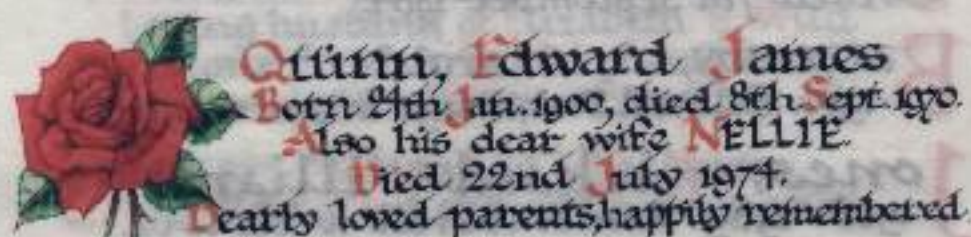 Quinn, Edward James
Born 24th Jan. 1900, died 8th Sept. 1970.
Also his dear wife NELLIE.
Died 22nd July 1974.
Dearly loved parents, happily remembered